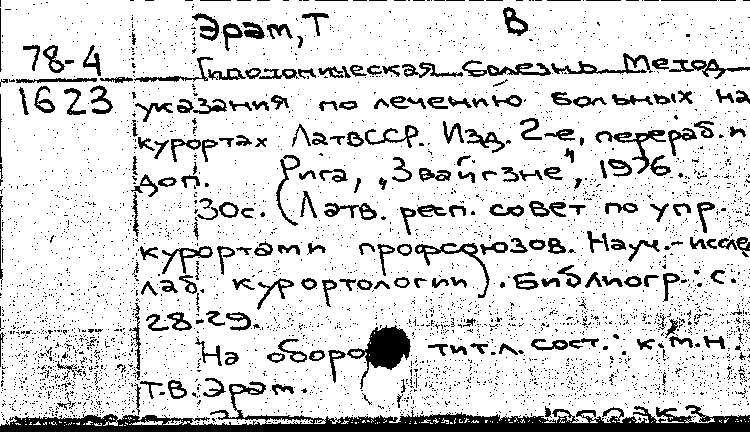 Эрам, Т В
78-4 Гипотоническая болезнь. Метод.
1623 указания по лечению больных на
курортах ЛатвССР. Изд. 2-е, перераб. и
доп. Рига, „Звайгзне", 1976.
30с. (Латв. респ. совет по упр.
курортами профсоюзов. Науч.-иссле
лаб. курортологии). Библиогр.: с.
28-29.
На оборо тит.л. сост.: к.м.н.
Т.В. Эрам.